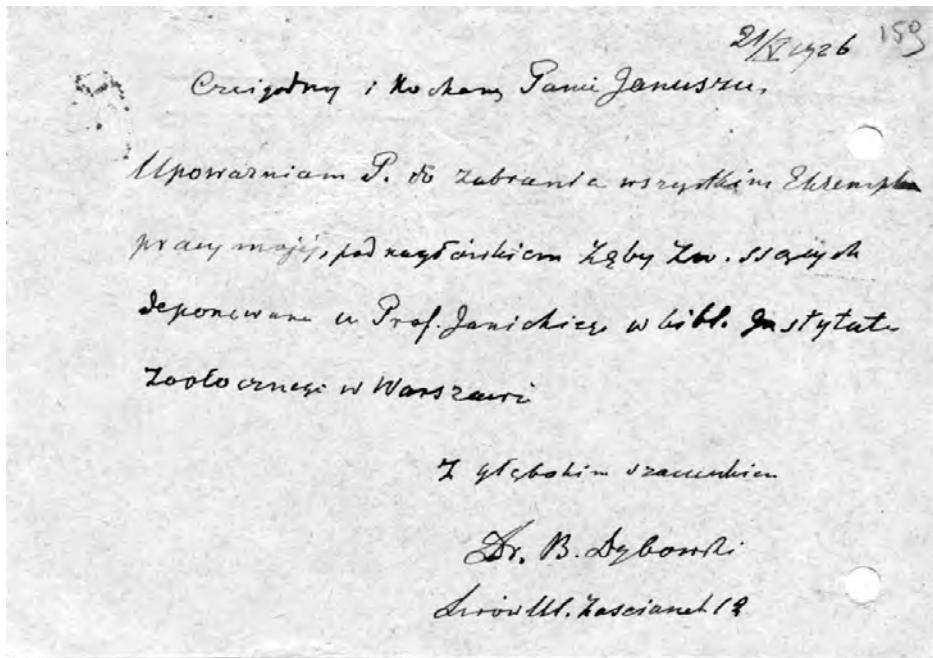 21/V 1926 159
Czcigodny i Kochany Panie Januszu,
Upoważniam P. do zabrania wszystkim Ekzempla
pracy mojéj, pod nagłówkiem Zęby Zw. ssących
deponowane u Prof. Janickiego w bibl. Instytutu
Zoolocznego w Warszawie
Z głębokim szacunkiem
Dr. B. Dybowski
Lwów Ul. Zascianek 12